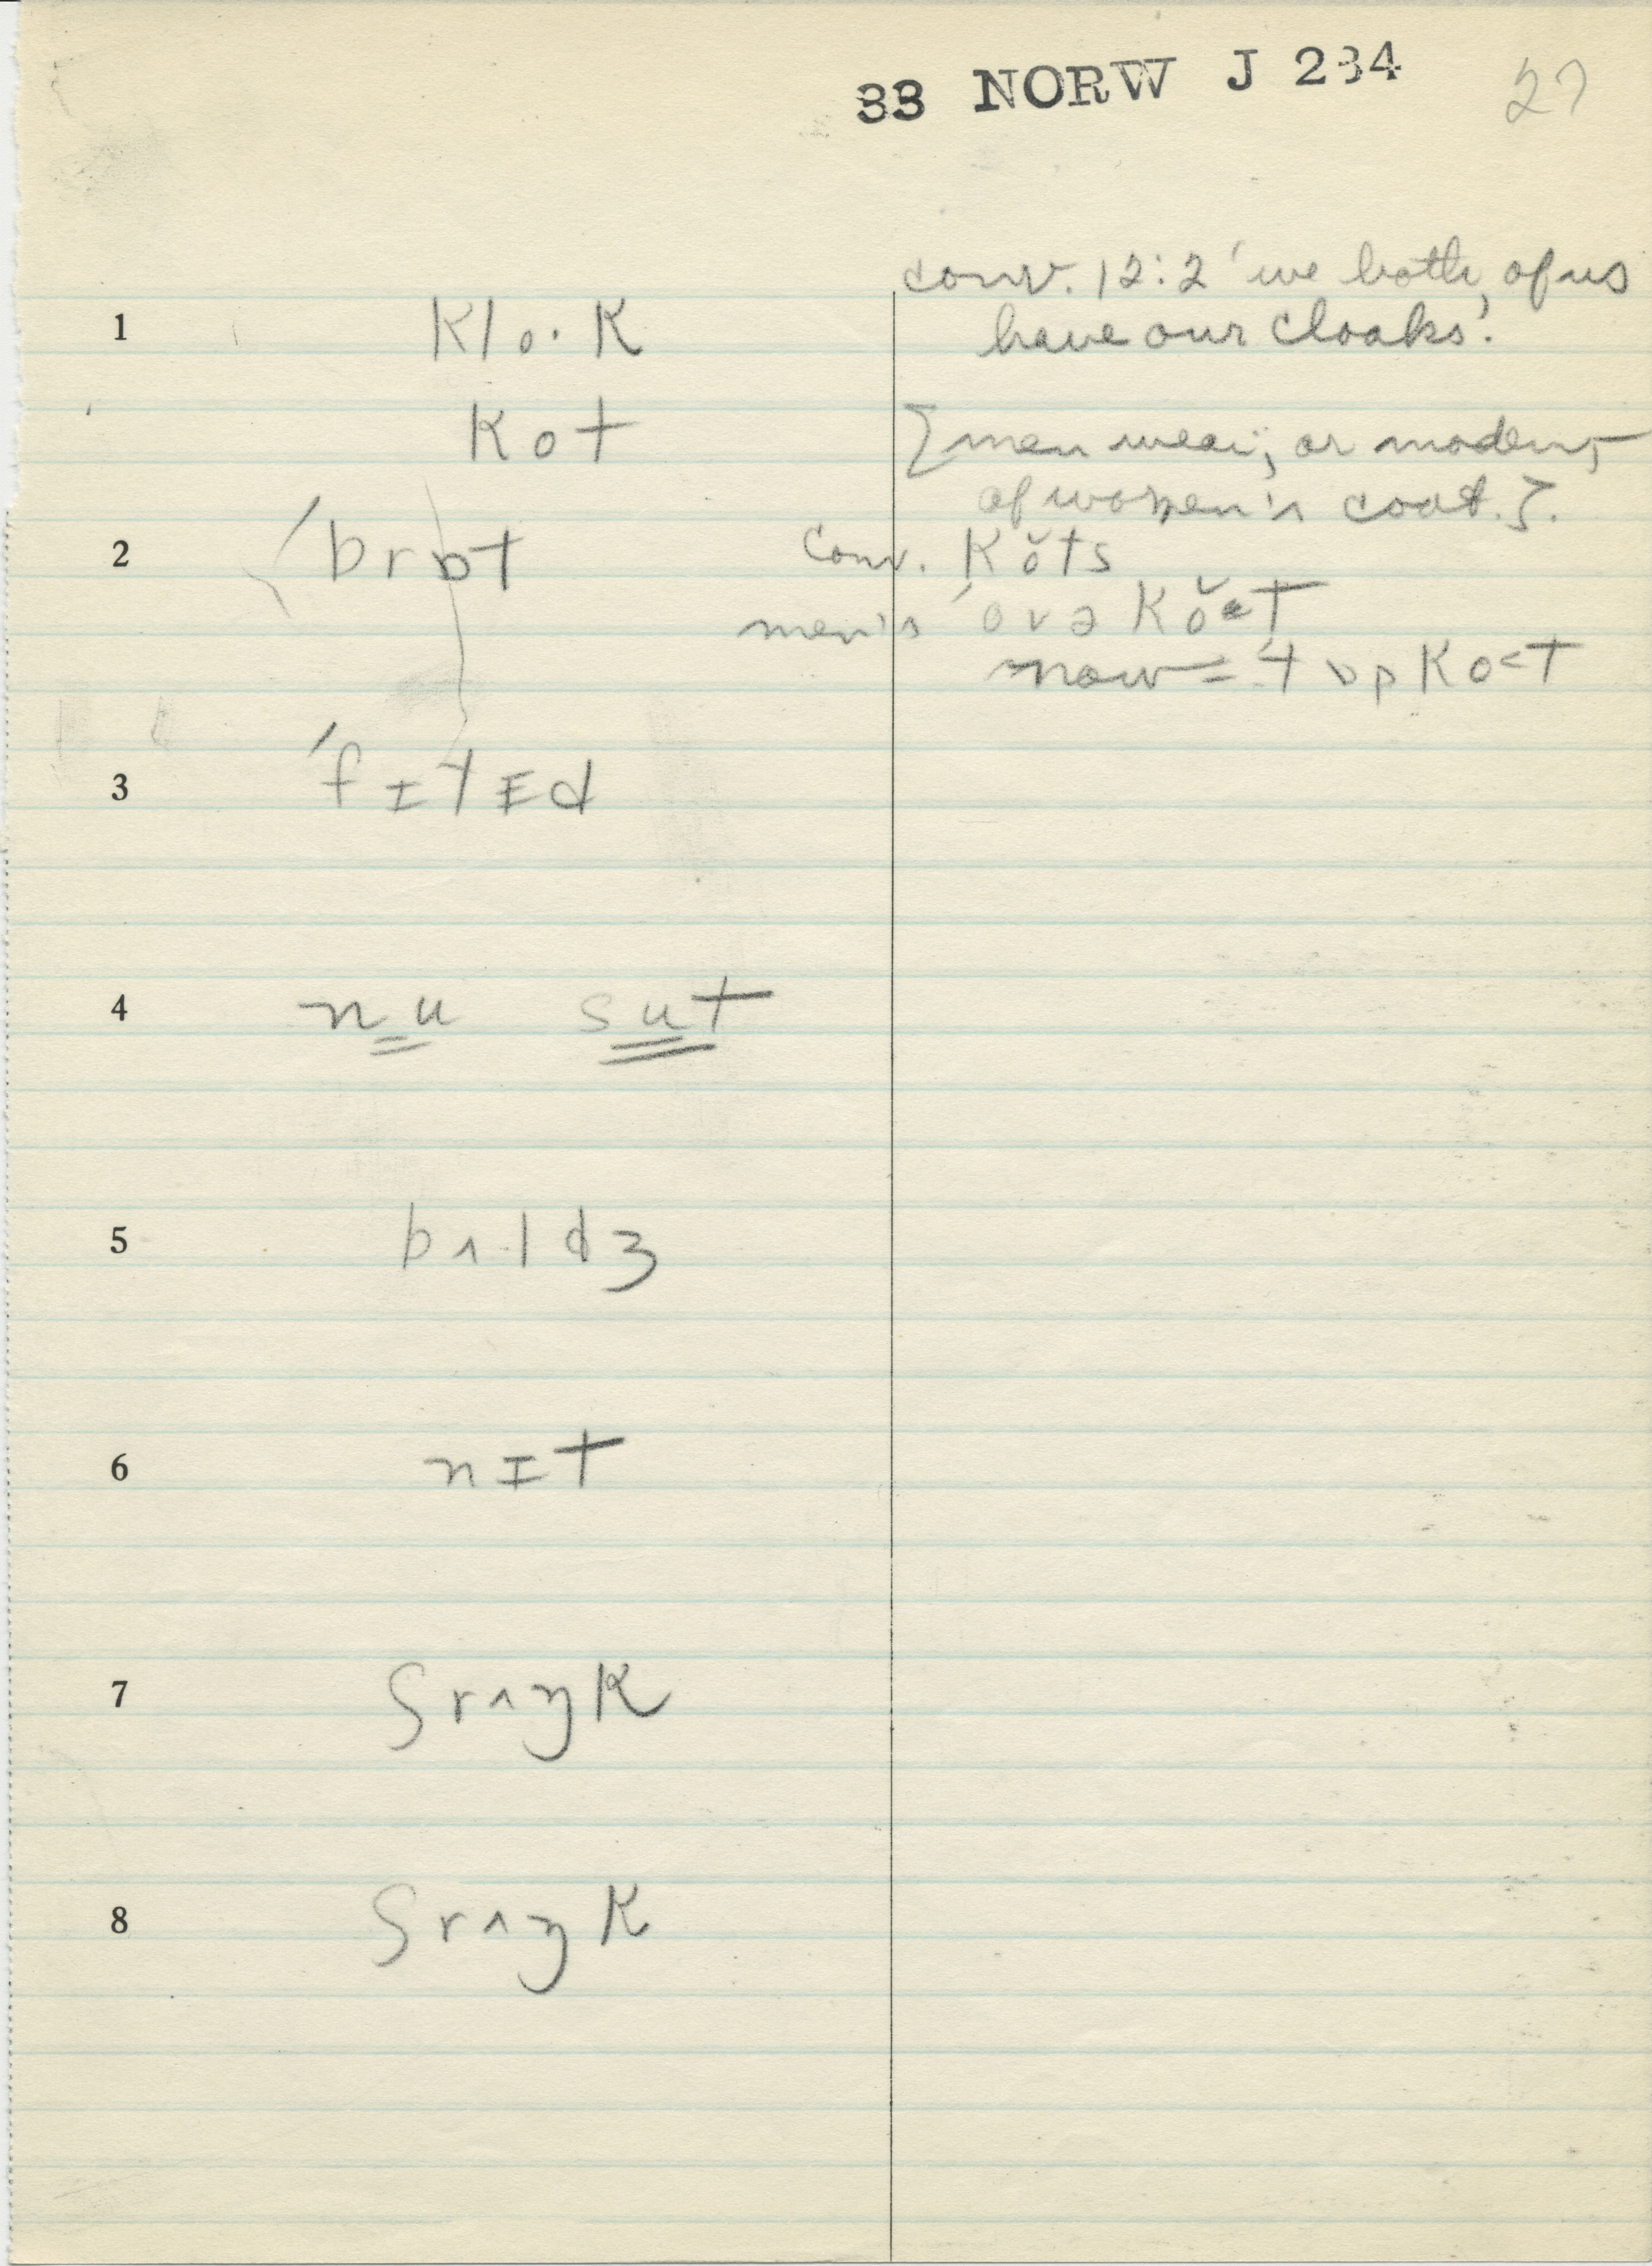 33 NORW J 234 27
conv. 12:2 'we both, of us
1 klo·k have our cloaks'.
kot [men wear, or modern,
of women's coat.].
2 ˈbrɒt conv. kŏts
men's ˈovə kŏət
now = ˈtɒpko<t
3 ˈfɪtɪd
4 nu sut
5 bʌ·ldʒ
6 nɪt
7 ʃrʌŋk
8 ʃrʌŋk